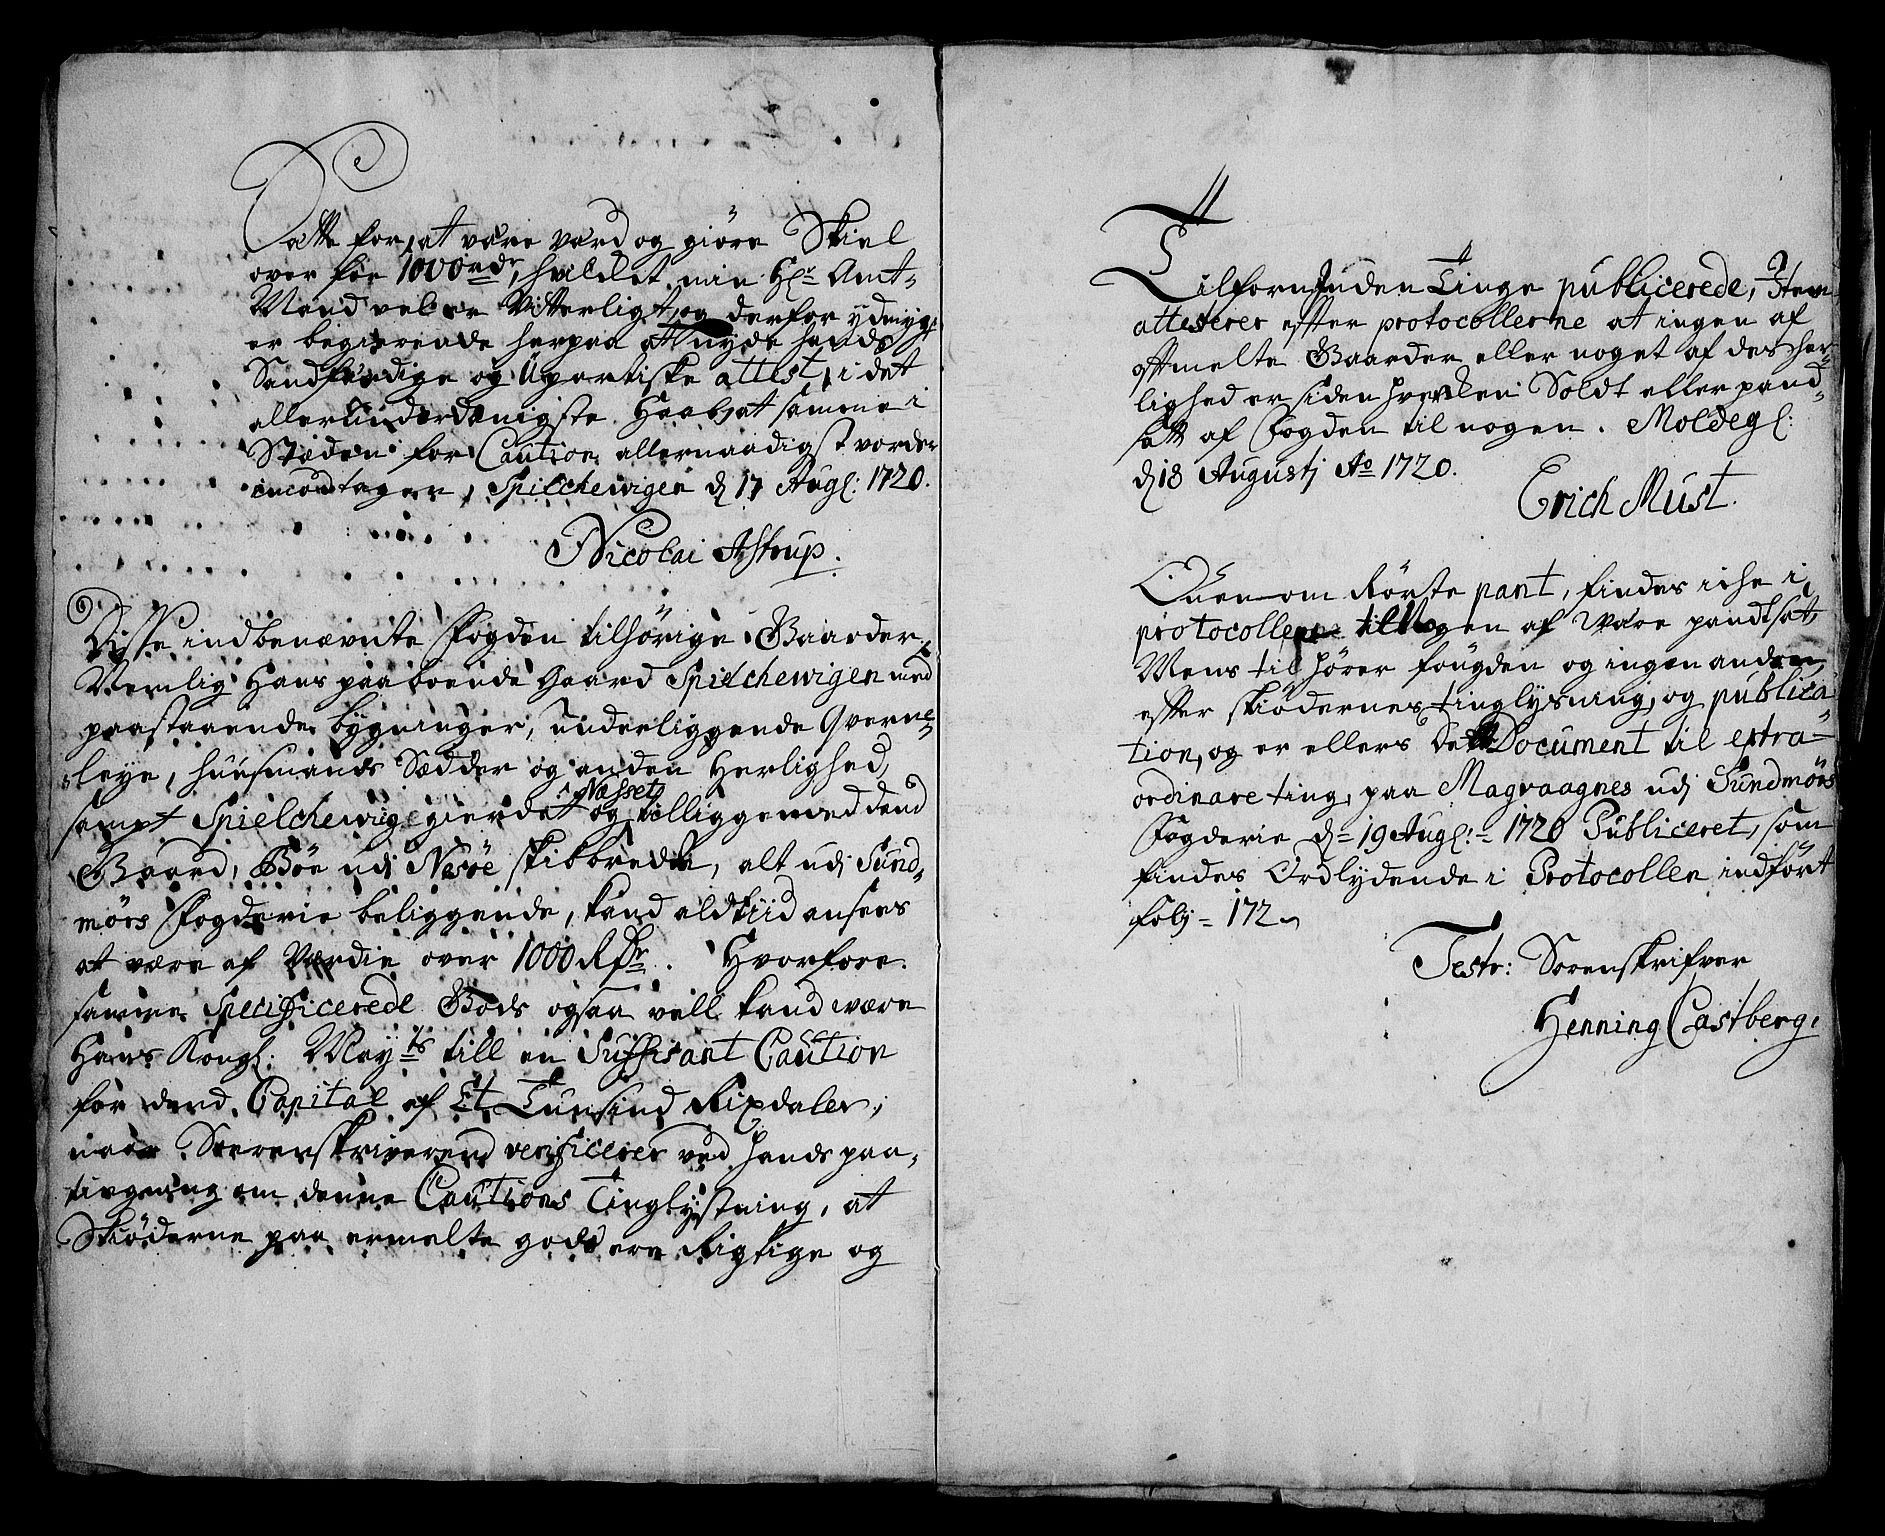 Satte for, at være værd og giöre Skiel
over for 1000 rdr, hvilcket min Hr Amt-
Mand vel er Vitterligt, og derfor ydmygst
er begierende herpaa at nyde hands
Sandfærdige og Upartiske attest, i det
allerunderdanigste Haab, at samme i
Stæden for Caution allernaadigst vorder
imodtagen, Spilchewigen d 17 Augl: 1720.
Nicolai Astrup.
Disse indbenævnte Fogden tilhörige Gaarder,
Nemlig Hans paaboende Gaard Spielchewigen med
paastaaende bygninger, underliggende Qverne-
leye, huusmands Sædder og anden Herlighed,
sampt Spielchewigsgierdet Næsset og tilliggende Ødend
Gaard, Böe udj Neröe skibbrede, alt udj Sund-
mörs Fogderie beliggende, kand aldtiid ansees
at være af Værdie over 1000 Rdr. Hvorfore
samme Specificerede Gods ogsaa vell kand være
Hans Kongl: Mayts till en Suffisant Caution
for dend Capital af Et Tusind Rixdaler,
naar Sorenskriveren verificerer ved hands paa-
tegning om denne Cautions Tinglysning, at
Skiöderne paa ermelte gods ere Rigtige og
Tilforn Inden Tinge publicerede, Item
attesterer efter protocollerne at ingen af
oftmelte Gaarder eller noget af des her-
lighed er siden hverken Soldt eller pand-
satt af Fogden til nogen. Moldeg:
d 18 Augustj Ao 1720.
Erich Must.
Ouen om Rörte pant, findes iche i
protocollerne til Nogen af være pandtsat,
Mens tilhører fougden og ingen anden,
efter skiödernes tinglysning, og publica-
tion, og er ellers dette Document til extra-
ordinare ting, paa Magraagnes udj Sundmörs
Fogderie dn 19 Augl: 1720 Publiceret, som
findes Ordlydende i Protocollen indfört
folj = 172
Testr: Sorenskrifver
Henning Castberg.